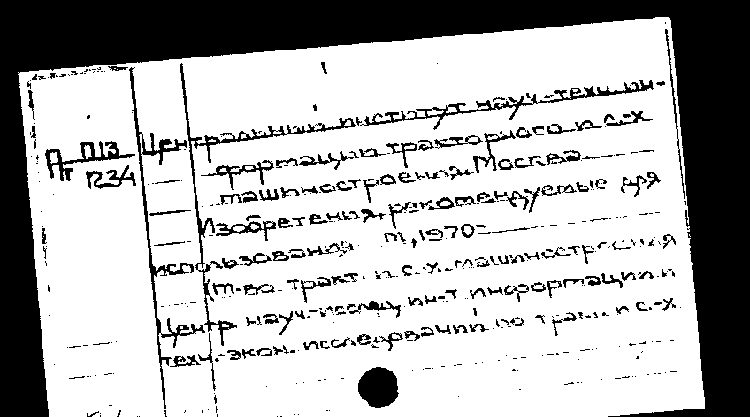 П П13 Центральный институт науч.-техн. ин-
Пт П234 формации тракторного и с.-х
машиностроения. Москва
Изобретения, рекомендуемые для
использования М, 1970-
(М-во тракт. и с.-х. машиностроения
Центр. науч.-исслед. ин-т информации и
техн.-экон. исследований по тракт. и с.-х